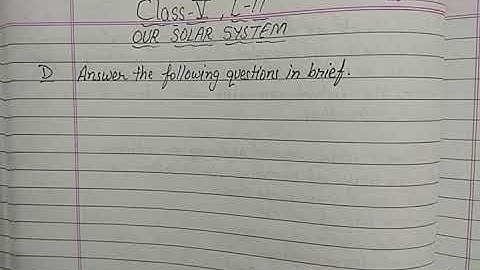 Class-V, L-11
OUR SOLAR SYSTEM
D Answer the following questions in brief.